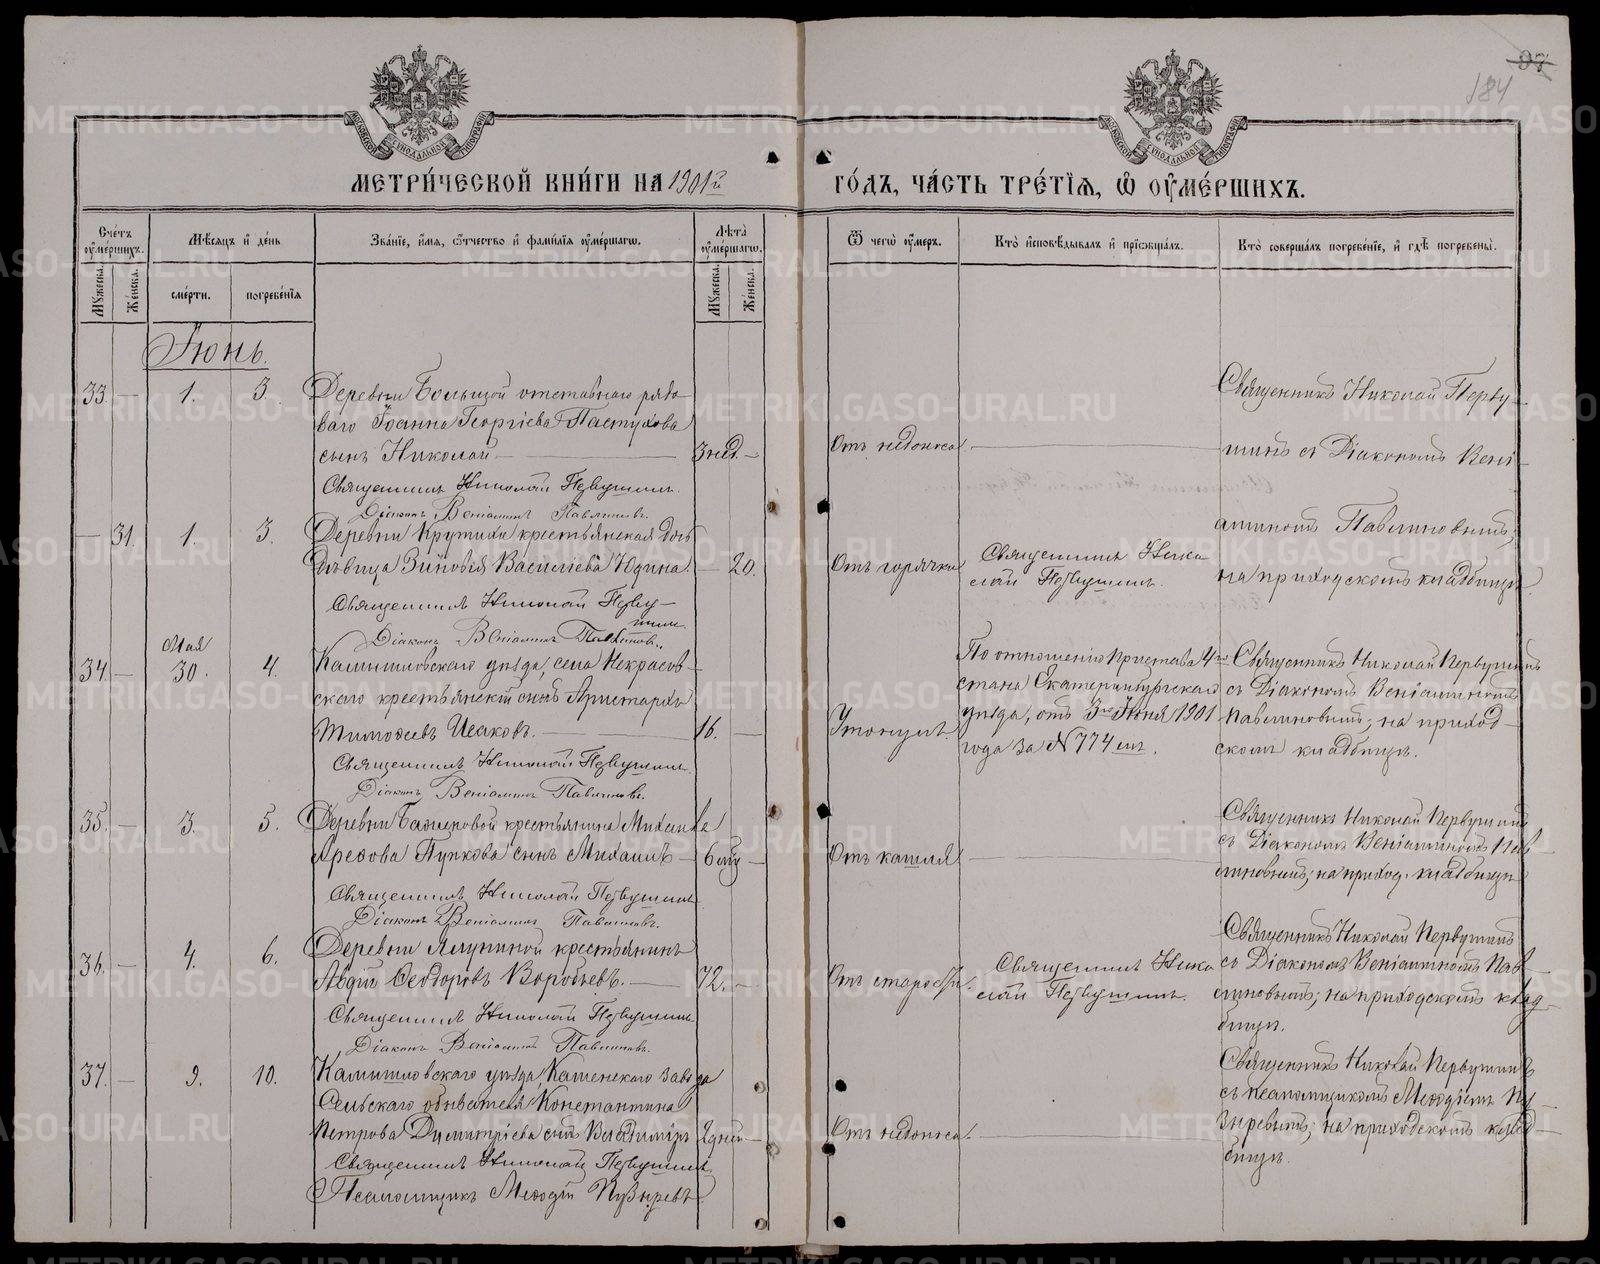 97
184
МЕТРИ́ЧЕСКОЙ КНИ́ГИ НА 1901й ГО́ДЪ, ЧА́СТЬ ТРЕ́ТІѦ, Ѡ҆ ОУ҆МЕ́РШИХЪ.
Сче́тъ оу҆ме́ршихъ.
Мѣ́сяцъ и҆ де́нь
Зва́нїе, и҆́мя, ѻ҆́тчество и҆ фами́лїя оу҆ме́ршагѡ.
Лѣ́та оу҆ме́ршагѡ.
Ѿ чегѡ̀ оу҆́меръ.
Кто̀ и҆сповѣ́дывалъ и҆ прїѡбща́лъ.
Кто̀ соверша́лъ погребе́нїе, и҆ гдѣ̀ погребены̀.
Мꙋ́жеска.
Же́нска.
сме́рти.
погребе́нїя
Мꙋ́жеска.
Же́нска.
Іюнь.
33. — 1. 3. Деревни Большой отставнаго рядо-
ваго Іоанна Георгіева Пастухова
сынъ Николай — 3 нед. —
Священникъ Николай Первушинъ.
Діаконъ Веніаминъ Павлиновъ.
Отъ недоноса
Священникъ Николай Перву-
шинъ съ Діакономъ Вені-
аминомъ Павлиновымъ;
на приходскомъ кладбищѣ.
— 31. 1. 3. Деревни Крутихи крестьянская дочь
дѣвица Зиновія Васильева Юдина. — 20.
Священникъ Николай Перву-
шинъ.
Діаконъ Веніаминъ Павлиновъ.
Отъ горячки
Священникъ Нико-
лай Первушинъ.
Мая
34. — 30. 4. Камышловскаго уѣзда, села Некрасов-
скаго крестьянскій сынъ Аристархъ
Тимофеевъ Исаковъ. — 16. —
Священникъ Николай Первушинъ.
Діаконъ Веніаминъ Павлиновъ.
Утонулъ.
По отношенію Пристава 4го
стана Екатеринбургскаго
уѣзда, отъ 3го Іюня 1901
года за № 774мъ.
Священникъ Николай Первушинъ
съ Діакономъ Веніаминомъ
Павлиновымъ; на приход-
скомъ кладбищѣ.
35. — 3. 5. Деревни крестьянина Михаила
Арефова Пупкова сынъ Михаилъ — 6 —
Священникъ Николай Первушинъ.
Діаконъ Веніаминъ Павлиновъ.
Отъ кашля
Священникъ Николай Первушинъ
съ Діакономъ Веніаминомъ Пав-
линовымъ; на приход. кладбищѣ
36. — 4. 6. Деревни крестьянинъ
Авдій Ѳеодоровъ Воробьевъ. — 72. —
Священникъ Николай Первушинъ.
Діаконъ Веніаминъ Павлиновъ.
Отъ старости.
Священникъ Нико-
лай Первушинъ.
Священникъ Николай Первушинъ
съ Діакономъ Веніаминомъ Пав-
линовымъ; на приходскомъ клад-
бищѣ.
37. — 9. 10. Камышловскаго уѣзда, Каменскаго завода
Сельскаго обывателя Константина
Петрова Димитріева сынъ Владиміръ 2 дни —
Священникъ Николай Первушинъ.
Псаломщикъ Меѳодій Пузыревъ.
Отъ недоноса.
Священникъ Николай Первушинъ
съ псаломщикомъ Меѳодіемъ Пу-
зыревымъ; на приходскомъ клад-
бищѣ.